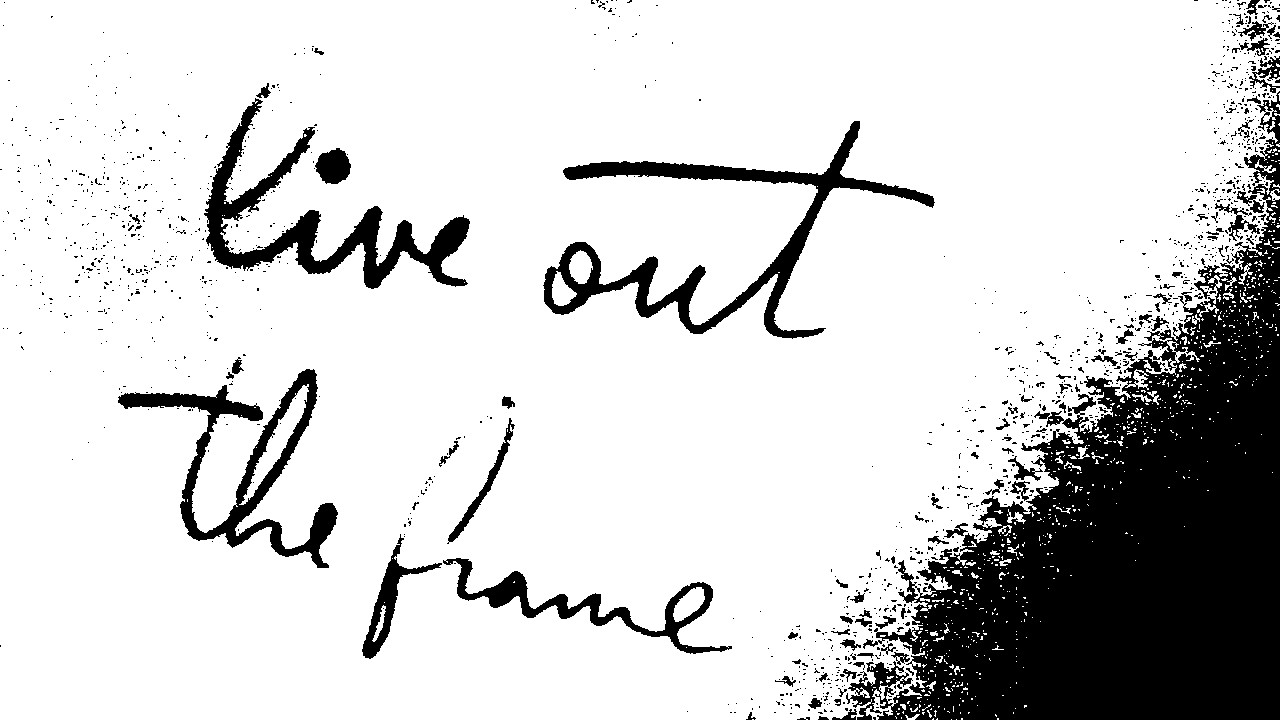 live out
the frame